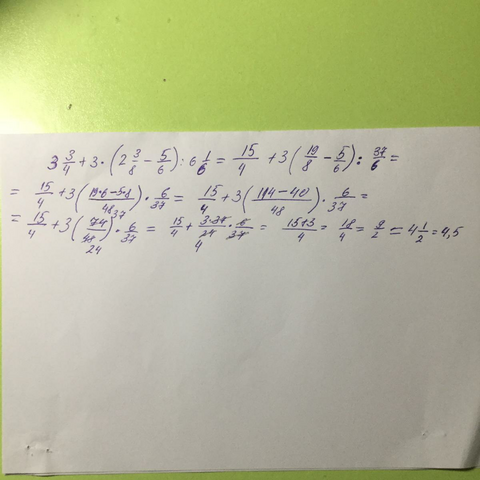 3 3/4 + 3 · (2 3/8 − 5/6) : 6 1/6 = 15/4 + 3(19/8 − 5/6) : 37/6 =
= 15/4 + 3((19·6−5·8)/48) · 6/37 = 15/4 + 3((114−40)/48) · 6/37 =
= 15/4 + 3(74/48) · 6/37 = 15/4 + 3·37/24 · 6/37 = 15+3/4 = 18/4 = 9/2 = 4 1/2 = 4,5